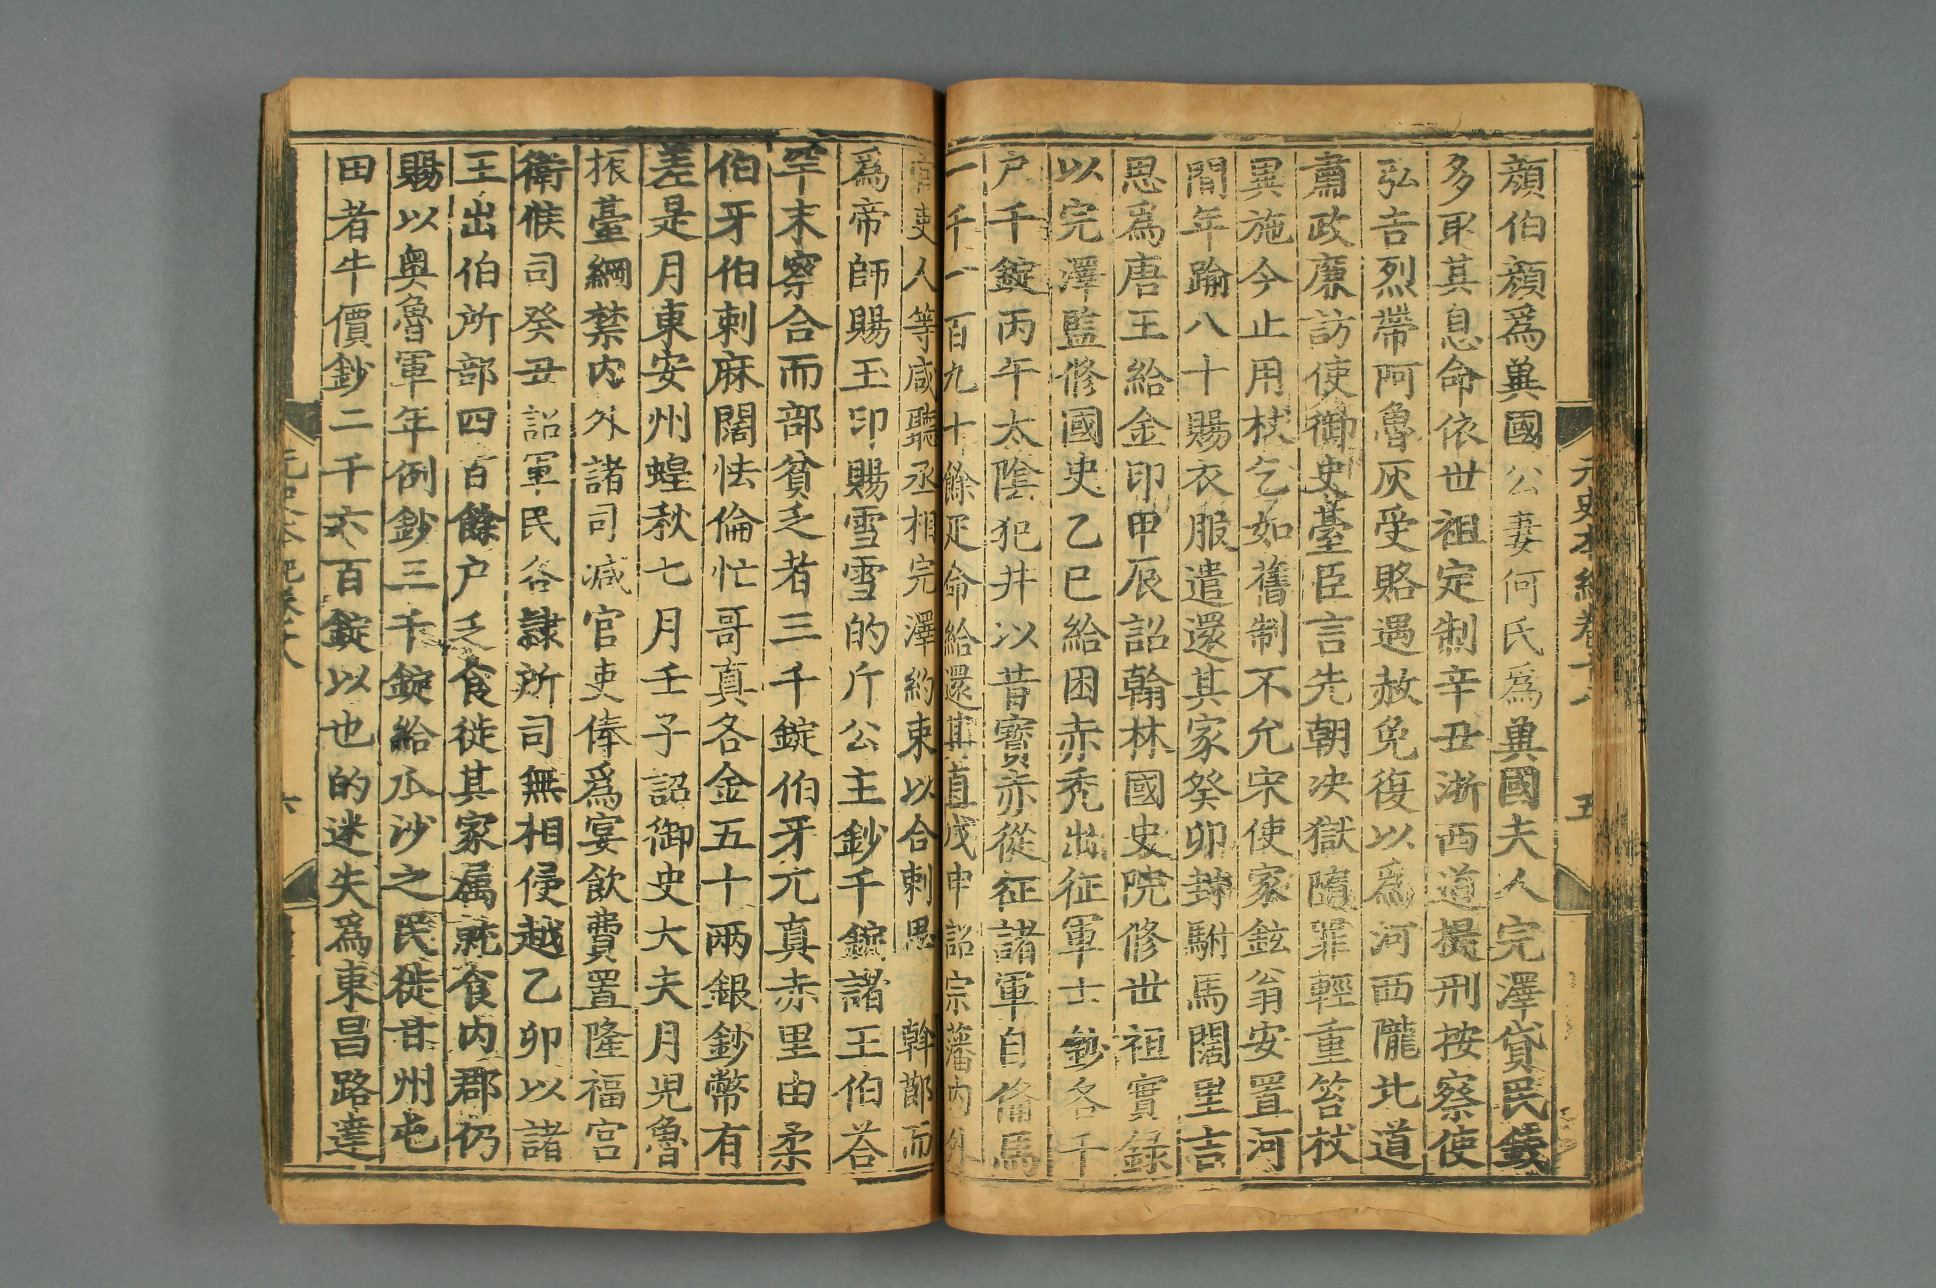 元史本紀卷十八
五
顏伯顏爲冀國公妻何氏爲冀國夫人完澤貸民錢
多取其息命依世祖定制辛丑浙西道提刑按察使
弘吉烈帶阿魯灰受賂遇赦免復以爲河西隴北道
肅政廉訪使御史臺臣言先朝决獄隨罪輕重笞杖
異施今止用杖乞如舊制不允宋使家鉉翁安置河
間年踰八十賜衣服遣還其家癸卯封駙馬闊里吉
思爲唐王給金印甲辰詔翰林國史院修世祖實録
以完澤監修國史乙巳給困赤秃出征軍士鈔各千
户千錠丙午太陰犯井以昔寶赤從征諸軍自備馬
一千一百九十餘疋命給還其直戊申詔宗藩内外
官吏人等咸聽丞相完澤約束以合剌思 斡節而
爲帝師賜玉印賜雪雪的斤公主鈔千錠諸王伯荅
罕末察合而部貧乏者三千錠伯牙兀真赤里由柔
伯牙伯剌麻闊怯倫忙哥真各金五十兩銀鈔幣有
差是月東安州蝗秋七月壬子詔御史大夫月兒魯
振臺綱禁内外諸司减官吏俸爲宴飲費置隆福宫
衛候司癸丑詔軍民各隷所司無相侵越乙卯以諸
王出伯所部四百餘户乏食徙其家属就食内郡仍
賜以奥魯軍年例鈔三千錠給瓜沙之民徙甘州屯
田者牛價鈔二千六百錠以也的迷失爲東昌路達
六